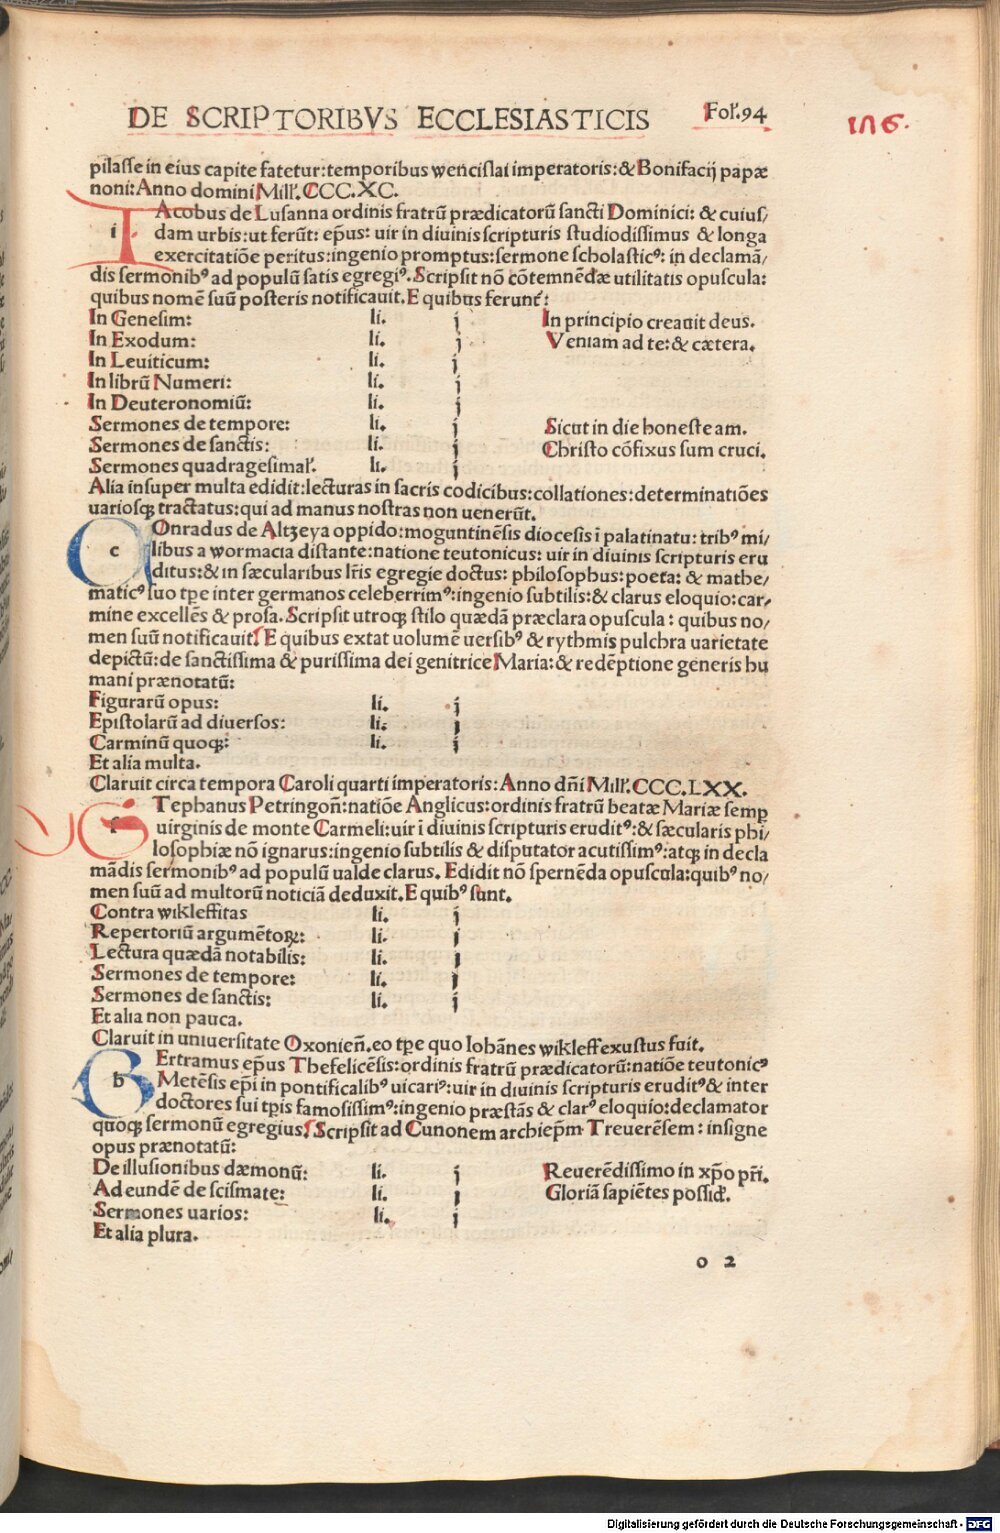 DE SCRIPTORIBVS ECCLESIASTICIS Folꝉ.94
pilasse in eius capite fatetur:temporibus wencislai imperatoris:& Bonifacij papæ
noni:Anno domini Millꝉ.CCC.XC.
IAcobus de Lusanna ordinis fratrū prædicatorū sancti Dominici: & cuius/
dam urbis:ut ferūt: ep̄us: uir in diuinis scripturis studiodissimus & longa
exercitatiōe peritus:ingenio promptus:sermone scholasticꝰ: in declamā/
dis sermonibꝰ ad populū satis egregiꝰ.Scripsit nō cōtemnēdæ utilitatis opuscula:
quibus nomē suū posteris notificauit.E quibus ferunt̄:
In Genesim: li. j In principio creauit deus.
In Exodum: li. j Veniam ad te:& cætera.
In Leuiticum: li. j
In librū Numeri: li. j
In Deuteronomiū: li. j
Sermones de tempore: li. j Sicut in die honeste am.
Sermones de sanctis: li. j Christo cōfixus sum cruci.
Sermones quadragesimalꝉ. li. j
Alia insuper multa edidit:lecturas in sacris codicibus:collationes:determinatiōes
uariosqꝫ tractatus:qui ad manus nostras non uenerūt.
COnradus de Altzeya oppido:moguntinēsis diocesis ī palatinatu: tribꝰ mi/
libus a wormacia distante:natione teutonicus: uir in diuinis scripturis eru
ditus:& in sæcularibus lr̄is egregie doctus: philosophus:poeta: & mathe/
maticꝰ suo tp̄e inter germanos celeberrimꝰ:ingenio subtilis:& clarus eloquio:car/
mine excellēs & prosa.Scripsit utroqꝫ stilo quædā præclara opuscula: quibus no/
men suū notificauit.E quibus extat uolumē uersibꝰ & rythmis pulchra uarietate
depictū:de sanctissima & purissima dei genitrice Maria:& redēptione generis hu
mani prænotatū:
Figurarū opus: li. j
Epistolarū ad diuersos: li. j
Carminū quoqꝫ: li. j
Et alia multa.
Claruit circa tempora Caroli quarti imperatoris:Anno dn̄i Millꝉ.CCC.LXX.
STephanus Petringoñ:natiōe Anglicus:ordinis fratrū beatæ Mariæ semꝑ
uirginis de monte Carmeli:uir ī diuinis scripturis eruditꝰ:& sæcularis phi/
losophiæ nō ignarus:ingenio subtilis & disputator acutissimꝰ:atqꝫ in decla
mādis sermonibꝰ ad populū ualde clarus. Edidit nō spernēda opuscula:quibꝰ no/
men suū ad multorū noticiā deduxit.E quibꝰ sunt.
Contra wikleffitas li. j
Repertoriū argumētoꝝ: li. j
Lectura quædā notabilis: li. j
Sermones de tempore: li. j
Sermones de sanctis: li. j
Et alia non pauca.
Claruit in uniuersitate Oxonieñ.eo tp̄e quo Iohānes wikleff exustus fuit.
BErtramus ep̄us Thefelicēsis:ordinis fratrū prædicatorū:natiōe teutonicꝰ
Metēsis ep̄i in pontificalibꝰ uicariꝰ:uir in diuinis scripturis eruditꝰ & inter
doctores sui tp̄is famosissimꝰ:ingenio præstās & clarꝰ eloquio:declamator
quoqꝫ sermonū egregius.Scripsit ad Cunonem archiep̄m Treuerēsem: insigne
opus prænotatū:
De illusionibus dæmonū: li. j Reuerēdissimo in xp̄o pr̄i.
Ad eundē de scismate: li. j Gloriā sapiētes possid.
Sermones uarios: li. j
Et alia plura.
o 2
Digitalisierung gefördert durch die Deutsche Forschungsgemeinschaft - DFG